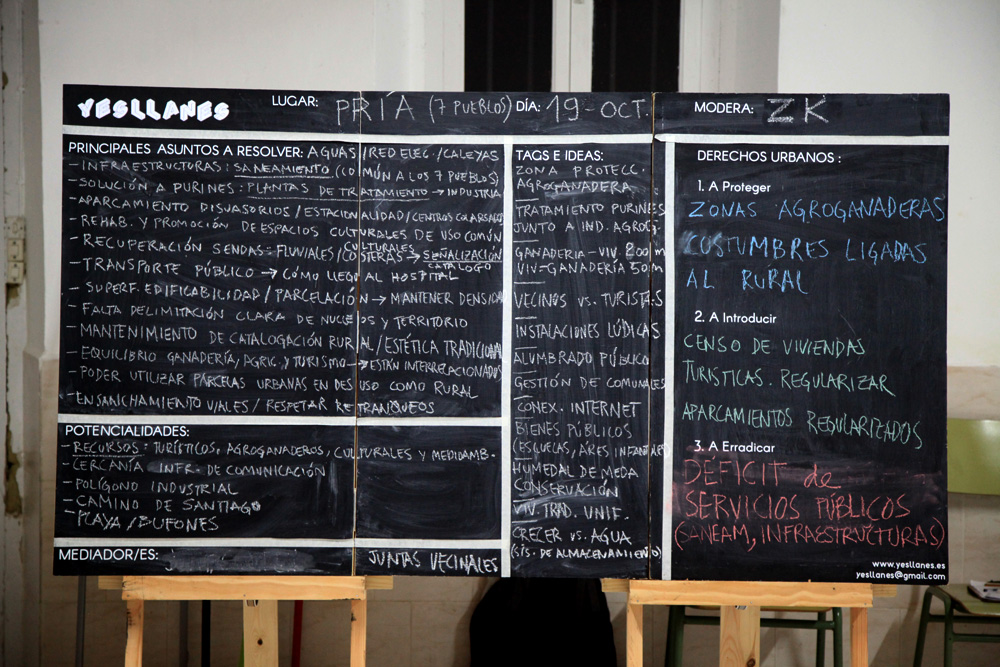 YESLLANES
LUGAR: PRÍA (7 PUEBLOS) DÍA: 19-OCT.
MODERA: ZK
PRINCIPALES ASUNTOS A RESOLVER: AGUAS/RED ELEC./CALEYAS
- INFRAESTRUCTURAS: SANEAMIENTO (COMÚN A LOS 7 PUEBLOS)
- SOLUCIÓN A PURINES: PLANTAS DE TRATAMIENTO → INDUSTRIA
- APARCAMIENTO DISUASORIOS/ESTACIONALIDAD/CENTROS
- REHAB. Y PROMOCIÓN DE ESPACIOS CULTURALES DE USO COMÚN
- RECUPERACIÓN SENDAS: FLUVIALES/COSTERAS → SEÑALIZACIÓN
CULTURALES CATÁLOGO
- TRANSPORTE PÚBLICO → CÓMO LLEGO AL HOSPITAL
- SUPERF. EDIFICABILIDAD/PARCELACIÓN → MANTENER DENSIDAD
- FALTA DELIMITACIÓN CLARA DE NUCLEOS Y TERRITORIO
- MANTENIMIENTO DE CATALOGACIÓN RURAL/ESTÉTICA TRADICIONAL
- EQUILIBRIO GANADERÍA/AGRIC. Y TURISMO → ESTÁN INTERRELACIONADOS
- PODER UTILIZAR PARCELAS URBANAS EN DESUSO COMO RURAL
- ENSANCHAMIENTO VIALES/RESPETAR RETRANQUEOS
POTENCIALIDADES:
- RECURSOS: TURÍSTICOS, AGROGANADEROS, CULTURALES Y MEDIOAMB.
- CERCANÍA INFR. DE COMUNICACIÓN
- POLÍGONO INDUSTRIAL
- CAMINO DE SANTIAGO
- PLAYA/BUFONES
MEDIADOR/ES: JUNTAS VECINALES
TAGS E IDEAS:
ZONA PROTECC.
AGROGANADERA.
TRATAMIENTO PURINES
JUNTO A IND. AGROG.
GANADERIA-VIV. 200m
VIV-GANADERÍA 50m
VECINOS VS. TURISTAS
INSTALACIONES LÚDICAS
ALUMBRADO PÚBLICO
GESTIÓN DE COMUNALES
CONEX. INTERNET
BIENES PÚBLICOS
(ESCUELAS, ARES INFANTILES)
HUMEDAL DE MEDA
CONSERVACIÓN
VIV. TRAD. UNIF.
CRECER VS. AGUA
(SIS. DE ALMACENAMIENTO)
DERECHOS URBANOS :
1. A Proteger
ZONAS AGROGANADERAS
COSTUMBRES LIGADAS
AL RURAL
2. A Introducir
CENSO DE VIVIENDAS
TURISTICAS. REGULARIZAR
APARCAMIENTOS REGULARIZADOS
3. A Erradicar
DEFICIT de
SERVICIOS PÚBLICOS
(SANEAM, INFRAESTRUCTURAS)
www.yesllanes.es
yesllanes@gmail.com